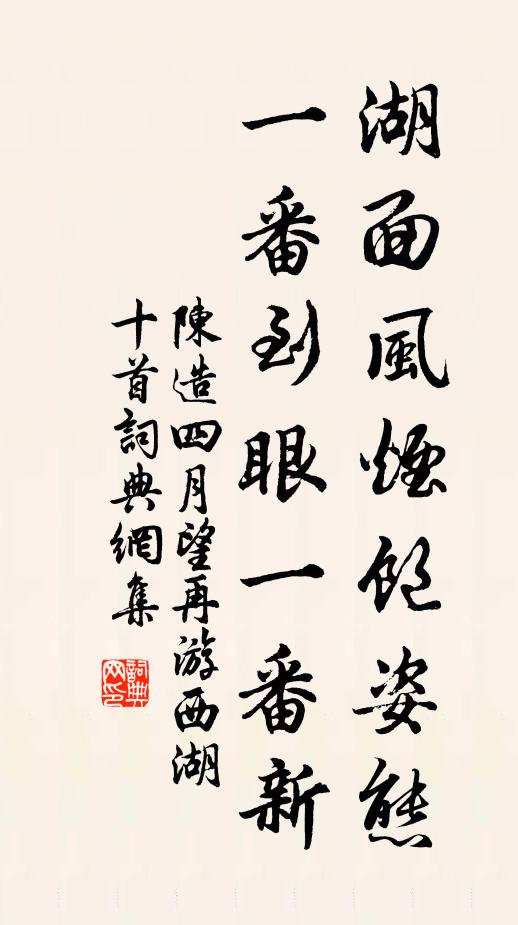 湖面風煙飽姿態
一番到眼一番新
陳造四月望再游西湖
十首詞典網集
詞典網印